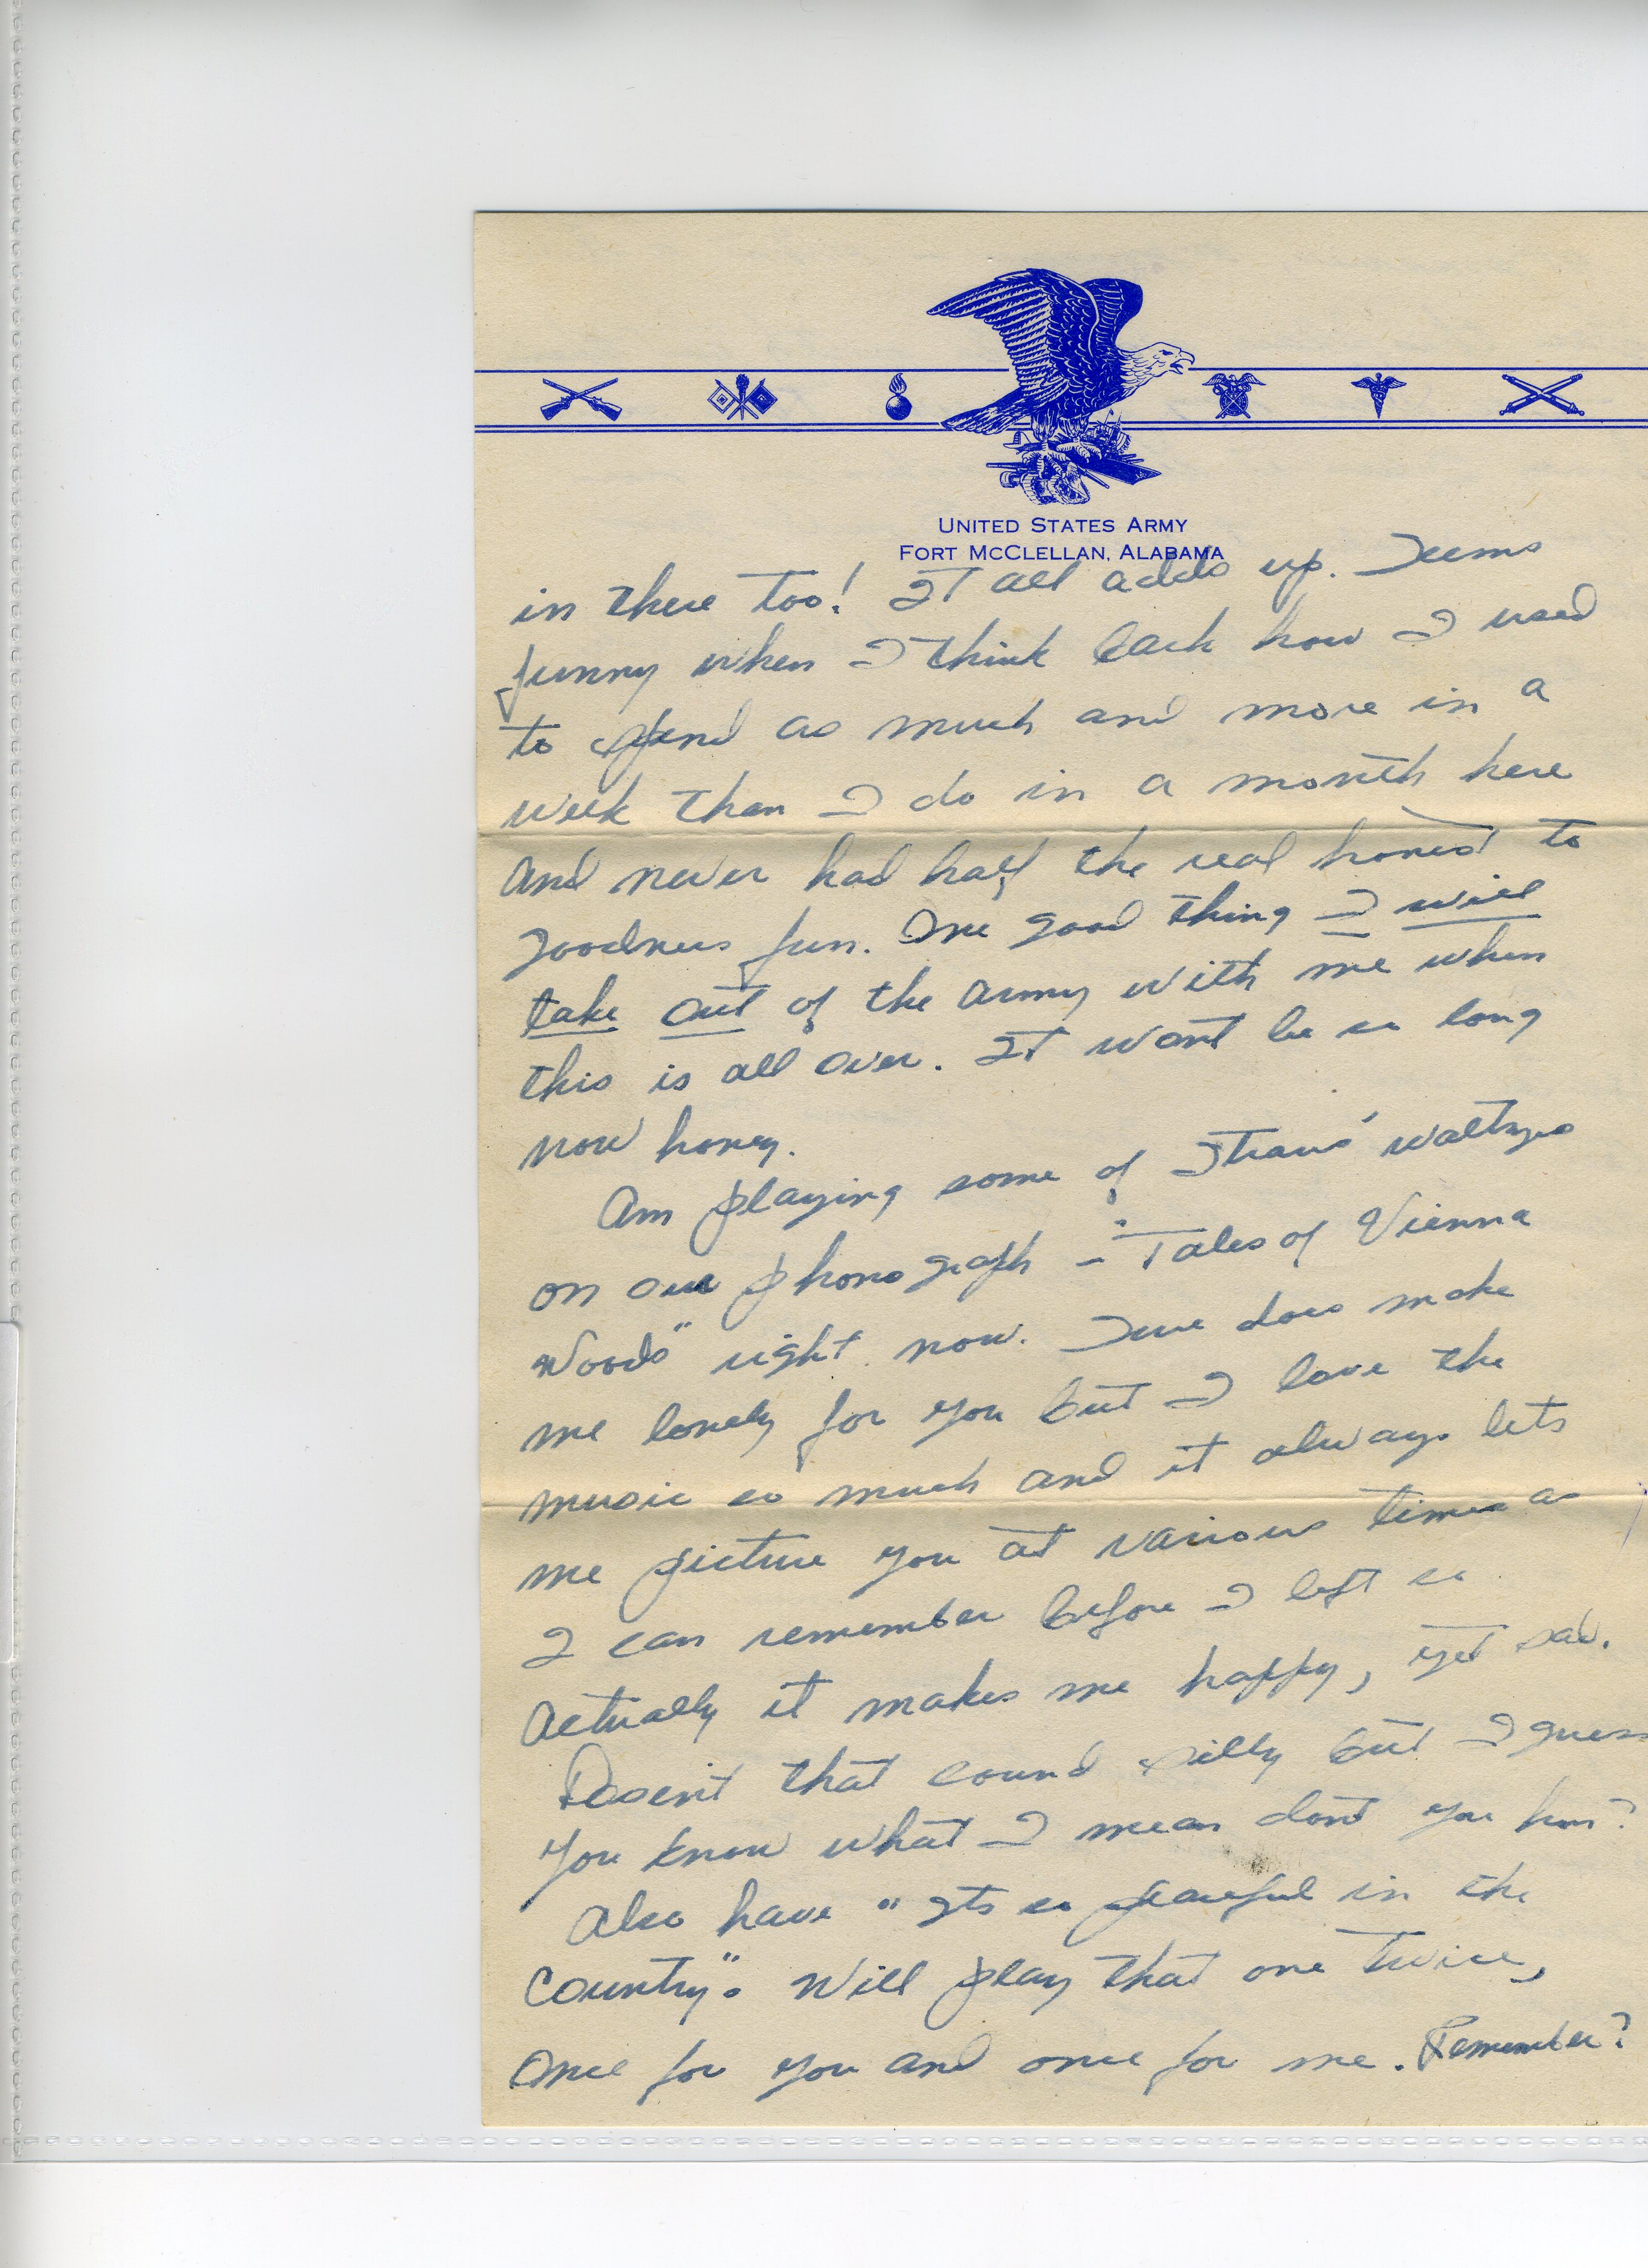 UNITED STATES ARMY
FORT MCCLELLAN, ALABAMA
in there too! It all adds up. Seems
funny when I think back how I used
to spend as much and more in a
week than I do in a month here
and never had half the real honest to
goodness fun. One good thing I will
take out of the army with me when
this is all over. It wont be so long
now honey.
Am playing some of Straus' waltzes
on our phonograph - "Tales of Vienna
Woods" right now. Sure does make
me lonely for you but I love the
music so much and it always lets
me picture you at various times as
I can remember before I left so
actually it makes me happy, yet sad.
Dosent that sound silly but I guess
you know what I mean dont you hun?
Also have "Its so peaceful in the
Country". Will play that one twice,
once for you and once for me. Remember?